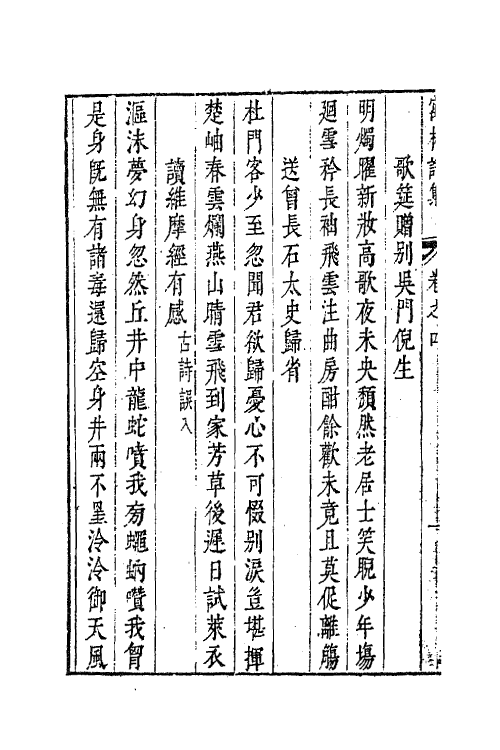 卷之四
歌筵贈别吳門倪生
明燭曜新妝高歌夜未央頽然老居士笑脫少年場
廻雪矜長袖飛雲注曲房酣餘歡未竟且莫促離觴
送曾長石太史歸省
杜門客少至忽聞君欲歸憂心不可惙别淚豈堪揮
楚岫春雲爛燕山晴雪飛到家芳草後遲日試萊衣
讀維摩經有感古詩誤入
漚沫夢幻身忽然丘井中龍蛇噴我旁蠅蚋囋我胷
是身旣無有諸毒還歸空身井兩不墨泠泠御天風